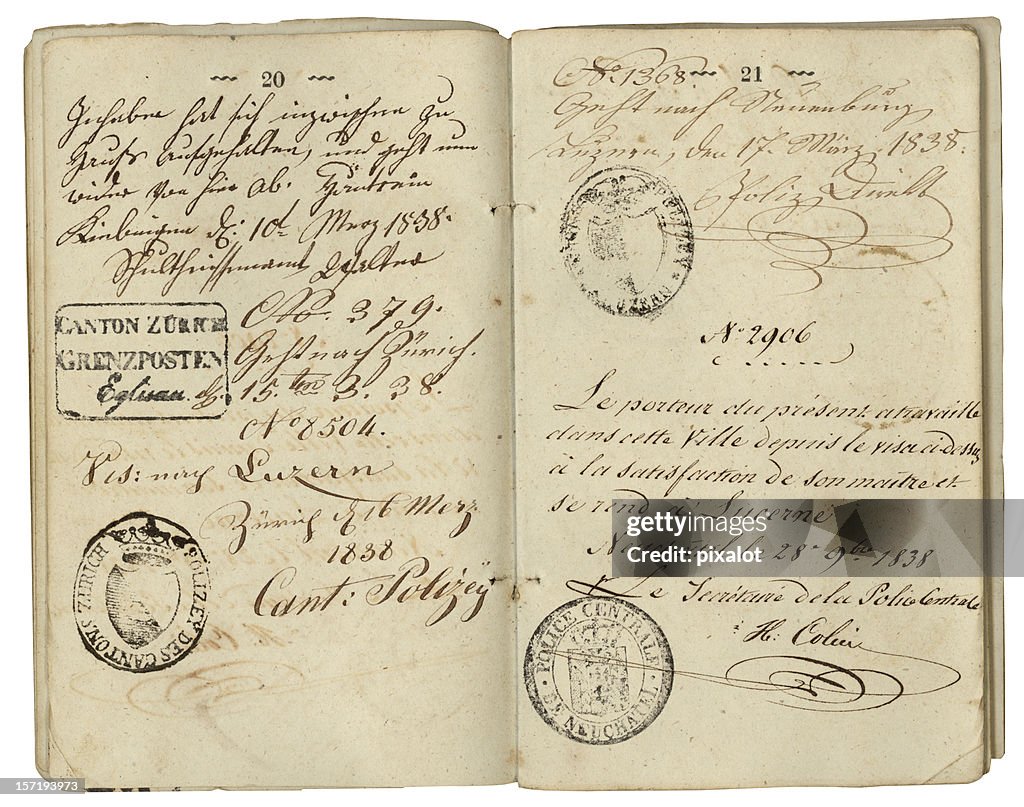 20
Inhaber hat sich inzwischen zu
Hauß aufgehalten, und geht nun
wider von hier ab.
d. 10t Merz 1838.
Schultheissenamt
CANTON ZÜRICH
GRENZPOSTEN
Eglisau
No. 379.
Geht nach Zürich.
15.ten 3. 38.
No 8504.
Vis: nach Luzern
Zürich d. 16 Merz
1838
Cant: Polizey
POLIZEY DES CANTONS ZÜRICH
21
No. 1368.
Geht nach Neuenburg
Luzern, den 17t März 1838.
LUZERN
No 2906
Le porteur du présent a travaillé
dans cette Ville depuis le visa ci-dessus
à la satisfaction de son maître et
se rend à Lucerne
28e 9bre 1838
Le Secrétaire de la Police Centrale
POLICE CENTRALE
DE NEUCHATEL
gettyimages®
Credit: pixalot
157193973